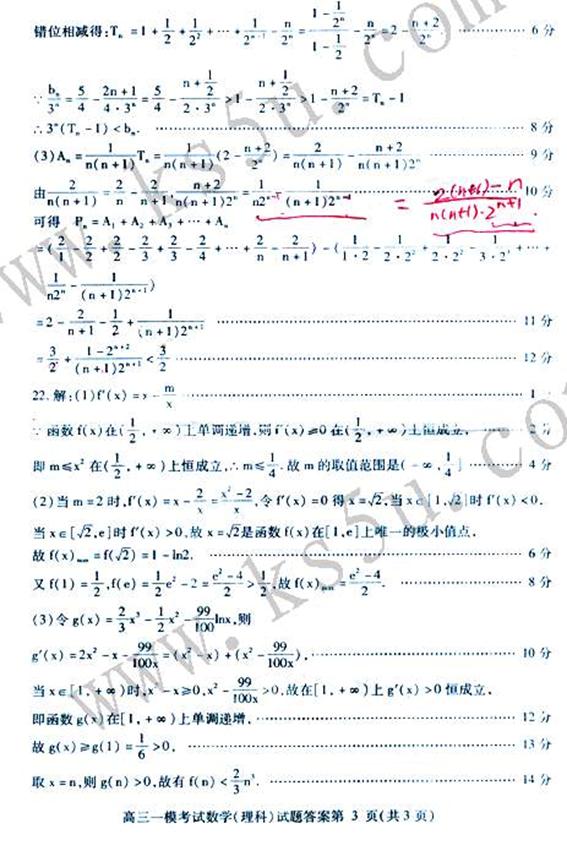 错位相减得:Tₙ=1+1/2+1/2²+…+1/2ⁿ⁻¹-n/2ⁿ=(1-1/2ⁿ)/(1-1/2)-n/2ⁿ=2-(n+2)/2ⁿ. 6分
∵bₙ/3ⁿ=5/4-(2n+1)/(4·3ⁿ)=5/4-(n+1/2)/(2·3ⁿ)>1-(n+1/2)/2ⁿ>1-(n+2)/2ⁿ=Tₙ-1
∴3ⁿ(Tₙ-1)<bₙ. 8分
(3)Aₙ=1/(n(n+1))Tₙ=1/(n(n+1))(2-(n+2)/2ⁿ)=2/(n(n+1))-(n+2)/(n(n+1)2ⁿ) 9分
由2/(n(n+1))=2/n-2/(n+1),(n+2)/(n(n+1)2ⁿ⁺¹)=1/(n2ⁿ)-1/((n+1)2ⁿ⁺¹) 10分 =(2(n+1)-n)/(n(n+1)·2ⁿ⁺¹).
可得 Pₙ=A₁+A₂+A₃+…+Aₙ
=(2/1-2/2+2/2-2/3+2/3-2/4+…+2/n-2/(n+1))-(1/(1·2)-1/(2·2²)+1/(2·2²)-1/(3·2³)+…+
1/(n2ⁿ)-1/((n+1)2ⁿ⁺¹))
=2-2/(n+1)-1/2+1/((n+1)2ⁿ⁺¹) 11分
=3/2+(1-2ⁿ⁺²)/((n+1)2ⁿ⁺¹)<3/2 12分
22.解:(1)f′(x)=x-m/x 1
∵函数f(x)在(1/2,+∞)上单调递增,则f′(x)≥0在(1/2,+∞)上恒成立, 2分
即m≤x²在(1/2,+∞)上恒成立,∴m≤1/4.故m的取值范围是(-∞,1/4] 4分
(2)当m=2时,f′(x)=x-2/x=(x²-2)/x,令f′(x)=0得x=√2,当x∈[1,√2]时f′(x)<0.
当x∈[√2,e]时f′(x)>0,故x=√2是函数f(x)在[1,e]上唯一的极小值点.
故f(x)min=f(√2)=1-ln2. 6分
又f(1)=1/2,f(e)=1/2e²-2=(e²-4)/2>1/2,故f(x)max=(e²-4)/2. 8分
(3)令g(x)=2/3x³-1/2x²-99/100lnx,则
g′(x)=2x²-x-99/100x=(x²-x)+(x²-99/100x), 10分
当x∈[1,+∞)时,x²-x≥0,x²-99/100x>0,故在[1,+∞)上g′(x)>0恒成立,
即函数g(x)在[1,+∞)上单调递增, 12分
故g(x)≥g(1)=1/6>0, 13分
取x=n,则g(n)>0,故有f(n)<2/3n³. 14分
高三一模考试数学(理科)试题答案第 3 页(共3页)
www.ks5u.com